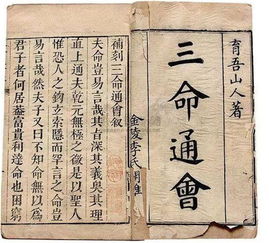 育吾山人著
三命通會
補刻三命通會叙
夫命豈易言哉其旨深其義奥其理
直上通夫乾元無極之後是以聖人
惟恐人之鈎玄索隱而罕言之命豈
易言哉然夫子又曰不知命無以爲
君子者何居葢富貴利達命也困窮